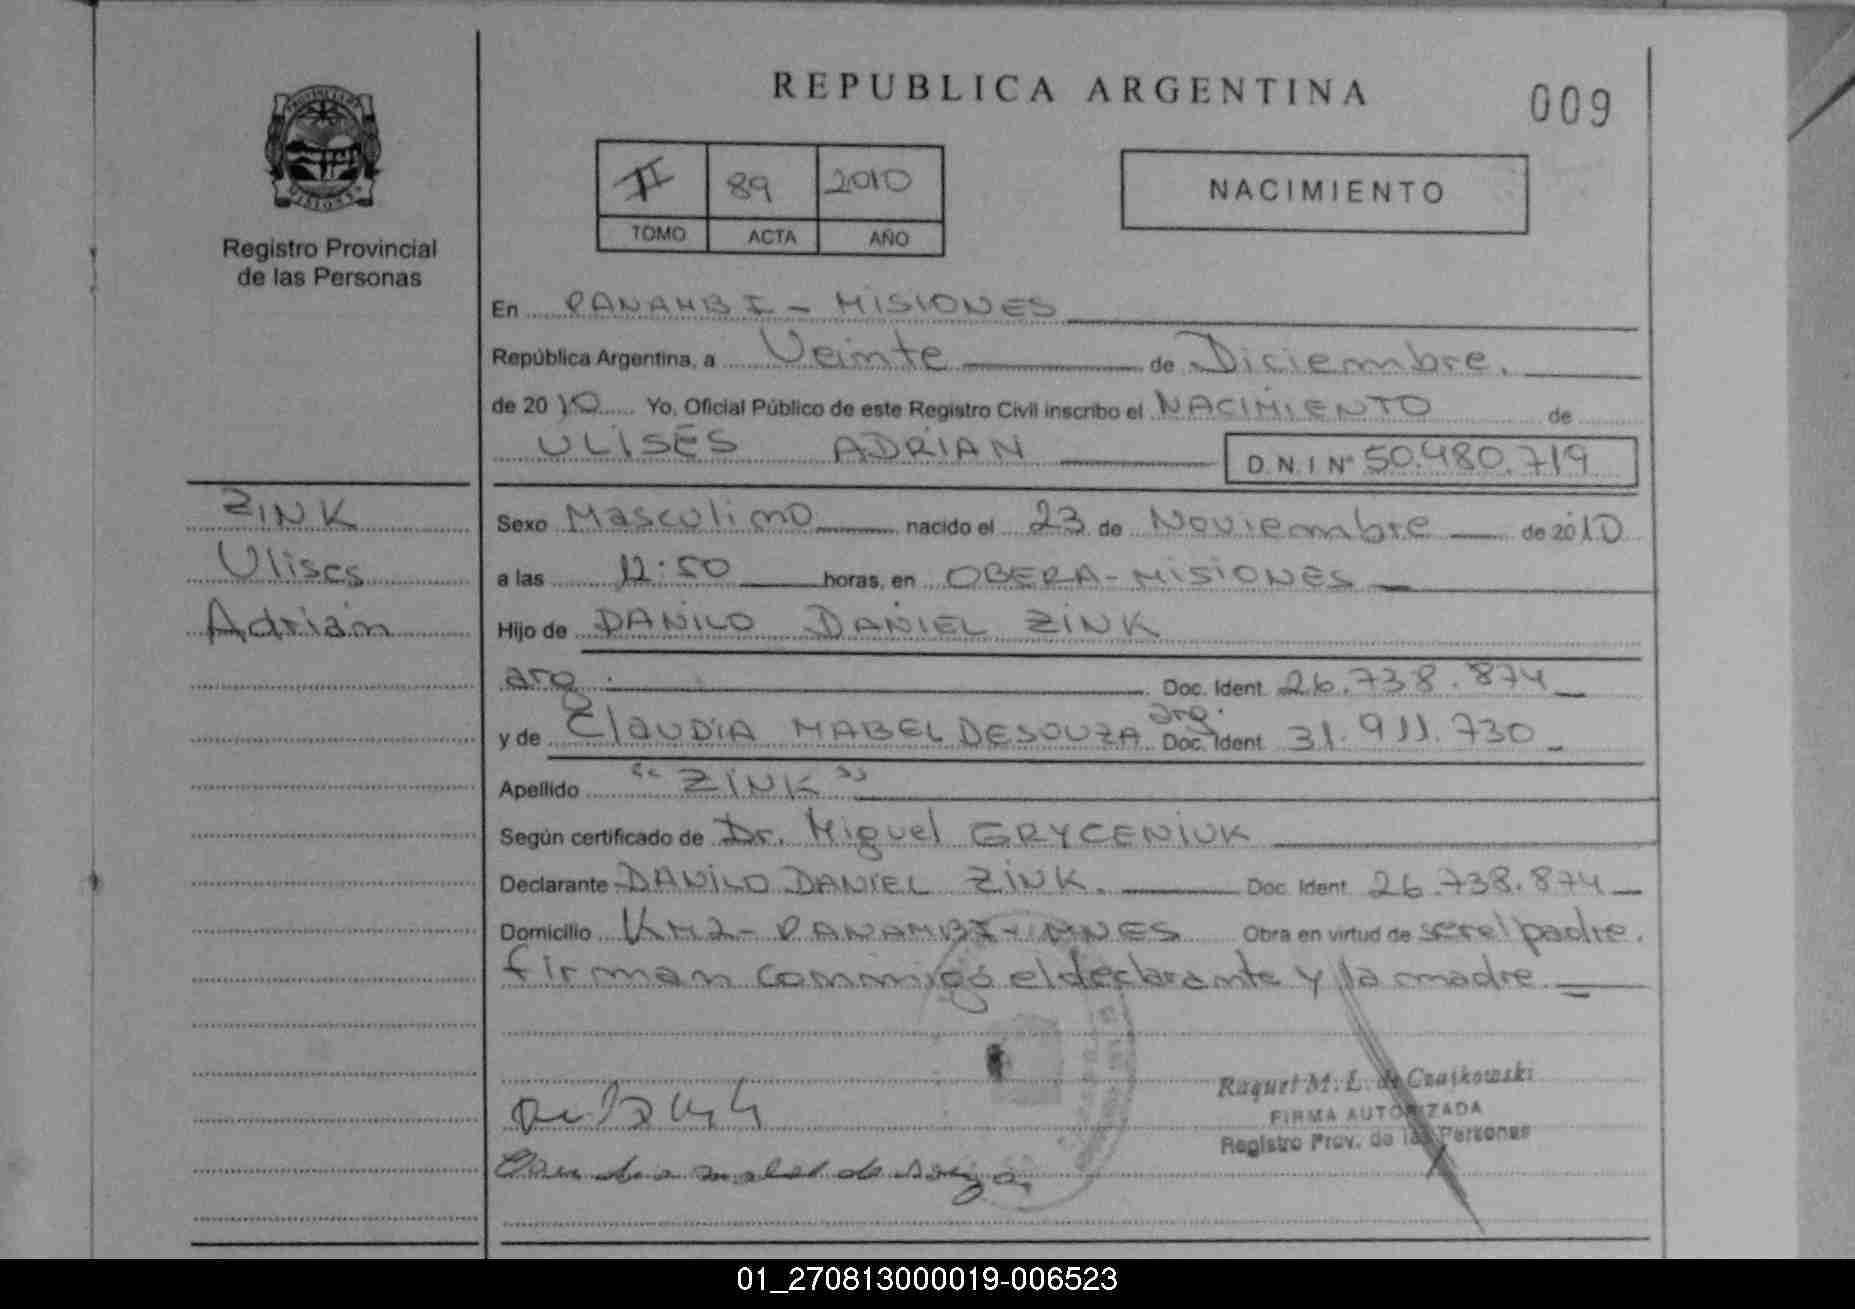 REPUBLICA ARGENTINA
009
Registro Provincial
de las Personas
II 89 2010
TOMO ACTA AÑO
NACIMIENTO
En PANAMBI - MISIONES
República Argentina, a Veinte de Diciembre.
de 2010 Yo, Oficial Público de este Registro Civil inscribo el NACIMIENTO de
ULISES ADRIAN D.N.I Nº 50.480.719
ZINK
Ulises
Adrián
Sexo Masculino nacido el 23 de Noviembre de 2010
a las 12:50 horas, en OBERA - MISIONES
Hijo de DANILO DANIEL ZINK
arg. Doc. Ident. 26.738.874
y de Claudia MABEL DESOUZA arg. Doc. Ident. 31.911.730
Apellido "ZINK"
Según certificado de Dr. Miguel GRYCENIUK
Declarante DANILO DANIEL ZINK. Doc. Ident. 26.738.874
Domicilio KM2 - PANAMBI - MNES Obra en virtud de ser el padre.
firman conmigo el declarante y la madre
Raquel M. L. de Czajkowski
FIRMA AUTORIZADA
Registro Prov. de las Personas
01_270813000019-006523